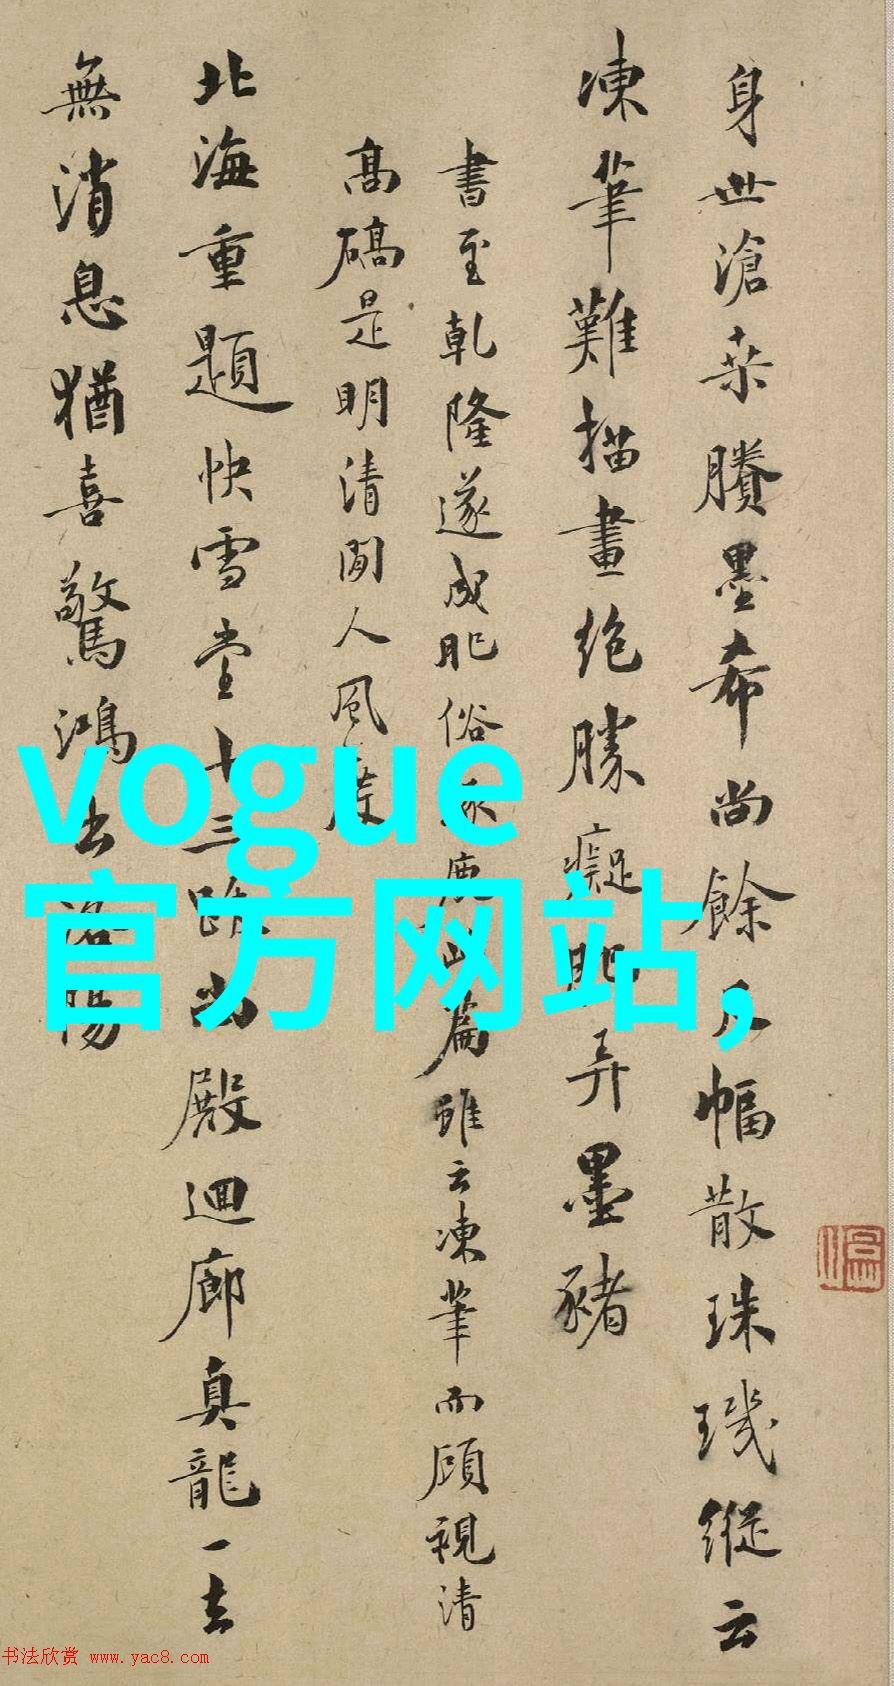 身世滄桑賸墨希尚餘尺幅散珠璣縱云
凍筆難描畫絶勝癡肥弄墨豬
書至乾隆遂成肥俗 鹿此篇雖云凍筆而顧視清
高碻是明清間人風度
北海重題快雪堂十三 尚殿迴廊真龍一去
無消息猶喜驚鴻出洛陽
vogue
官方网站,
书法欣赏 www.yac8.com